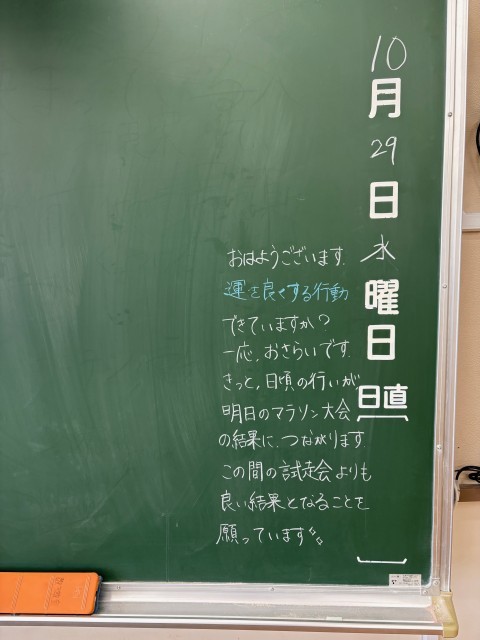 10月29日水曜日
日直
おはようございます.
運を良くする行動
できていますか?
一応,おさらいです.
きっと,日頃の行いが,
明日のマラソン大会
の結果に,つながります
この間の試走会よりも
良い結果となることを
願っています